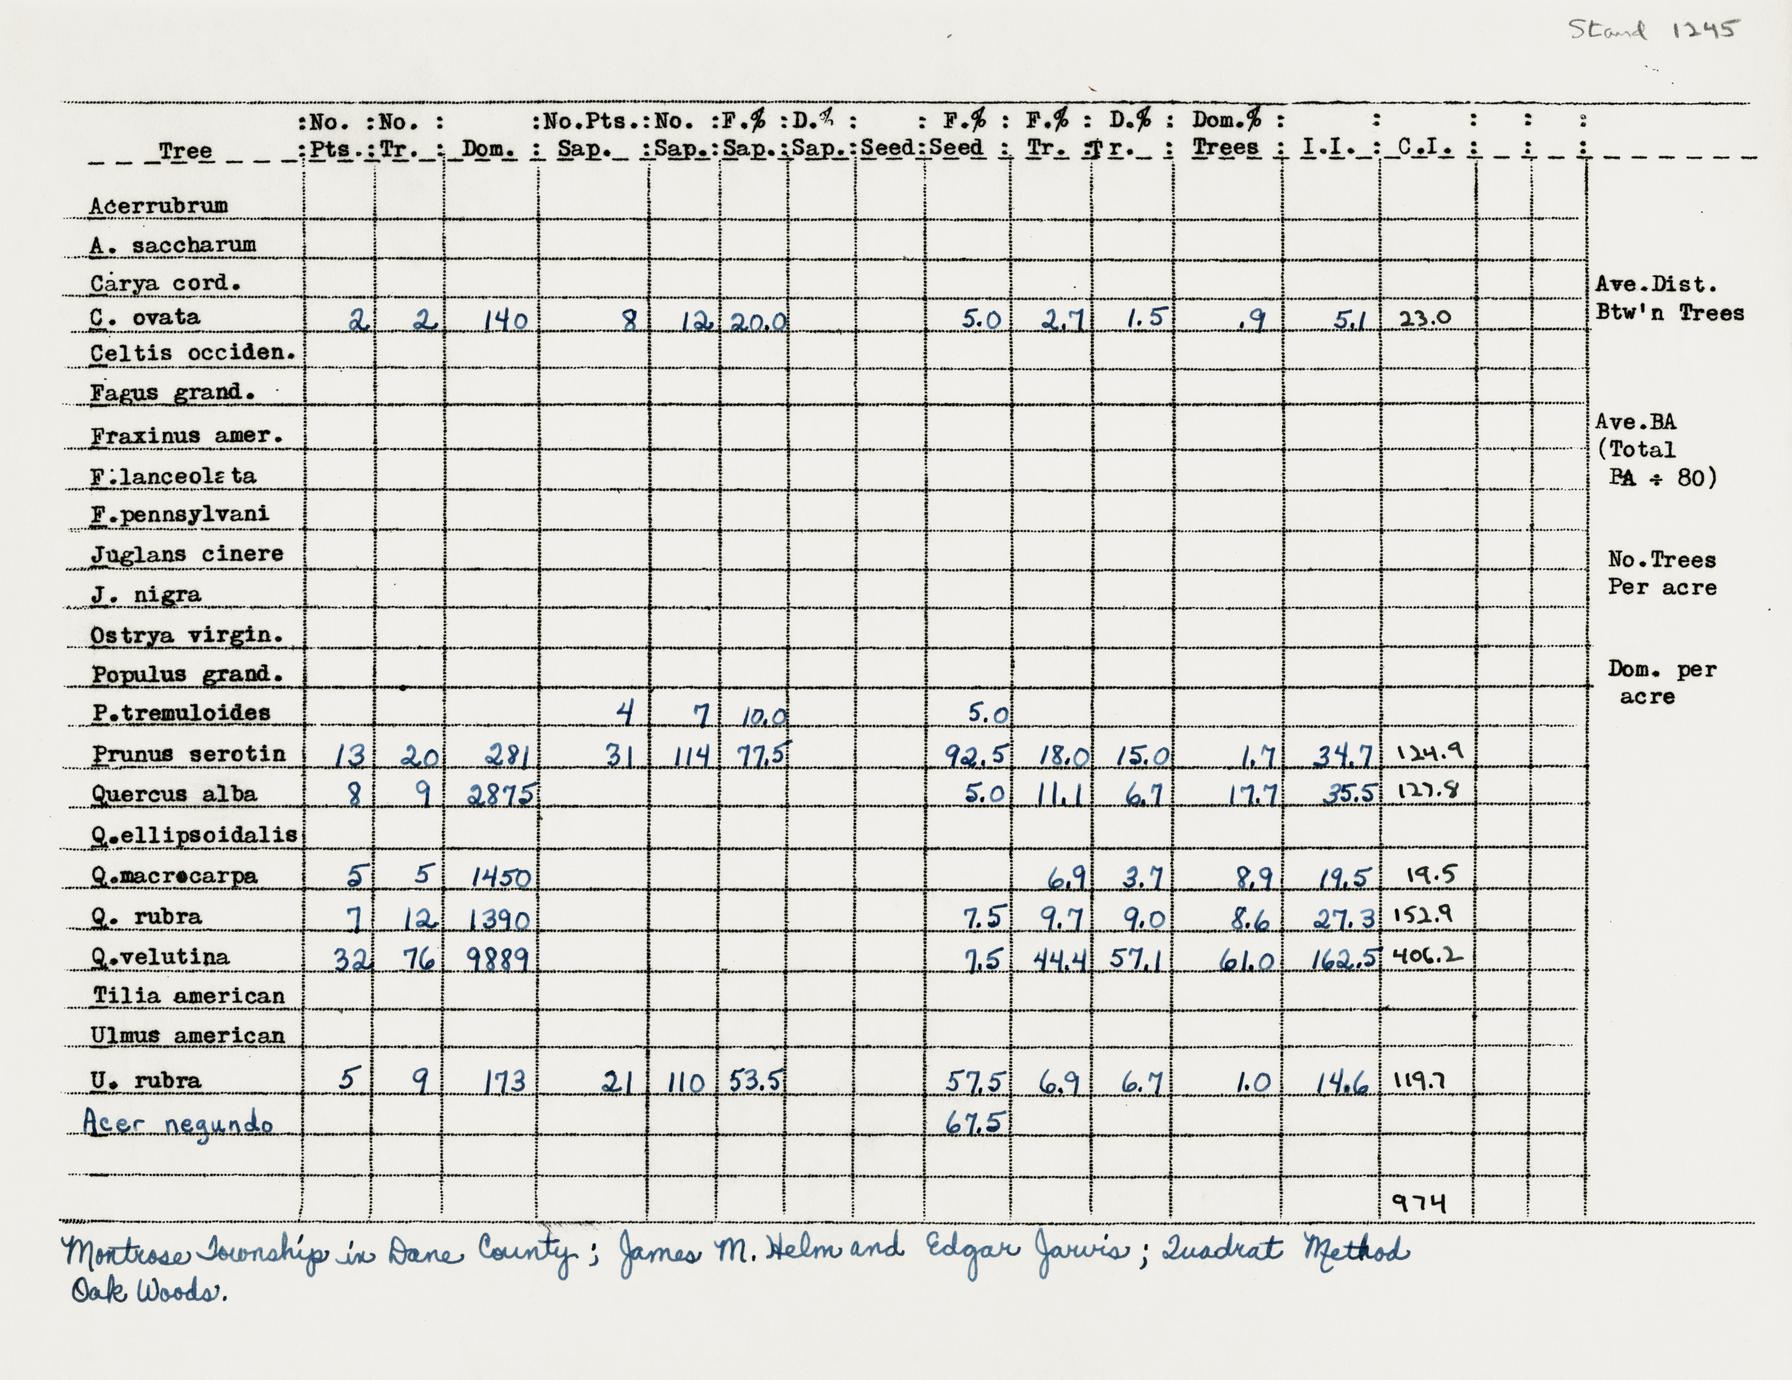 Stand 1245
:No. :No. : :No.Pts.:No. :F.% :D.% : : F.% : F.% : D.% : Dom.% : : : : :
_ _ _Tree _ _ _ :Pts.:Tr. : Dom. : Sap. :Sap.:Sap.:Sap.:Seed:Seed : Tr. :Tr. : Trees : I.I. : C.I. : : :
Acerrubrum
A. saccharum
Carya cord.
Ave.Dist.
C. ovata 2 2 140 8 12 20.0 5.0 2.7 1.5 .9 5.1 23.0
Btw'n Trees
Celtis occiden.
Fagus grand.
Ave.BA
Fraxinus amer.
(Total
F.lanceolata
BA ÷ 80)
F.pennsylvani
Juglans cinere
No.Trees
J. nigra
Per acre
Ostrya virgin.
Populus grand.
Dom. per
acre
P.tremuloides 4 7 10.0 5.0
Prunus serotin 13 20 281 31 114 77.5 92.5 18.0 15.0 1.7 34.7 124.9
Quercus alba 8 9 2875 5.0 11.1 6.7 17.7 35.5 127.8
Q.ellipsoidalis
Q.macrocarpa 5 5 1450 6.9 3.7 8.9 19.5 19.5
Q. rubra 7 12 1390 7.5 9.7 9.0 8.6 27.3 152.9
Q.velutina 32 76 9889 7.5 44.4 57.1 61.0 162.5 406.2
Tilia american
Ulmus american
U. rubra 5 9 173 21 110 53.5 57.5 6.9 6.7 1.0 14.6 119.7
Acer negundo 67.5
974
Montrose Township in Dane County; James M. Helm and Edgar Jarvis; Quadrat Method
Oak Woods.